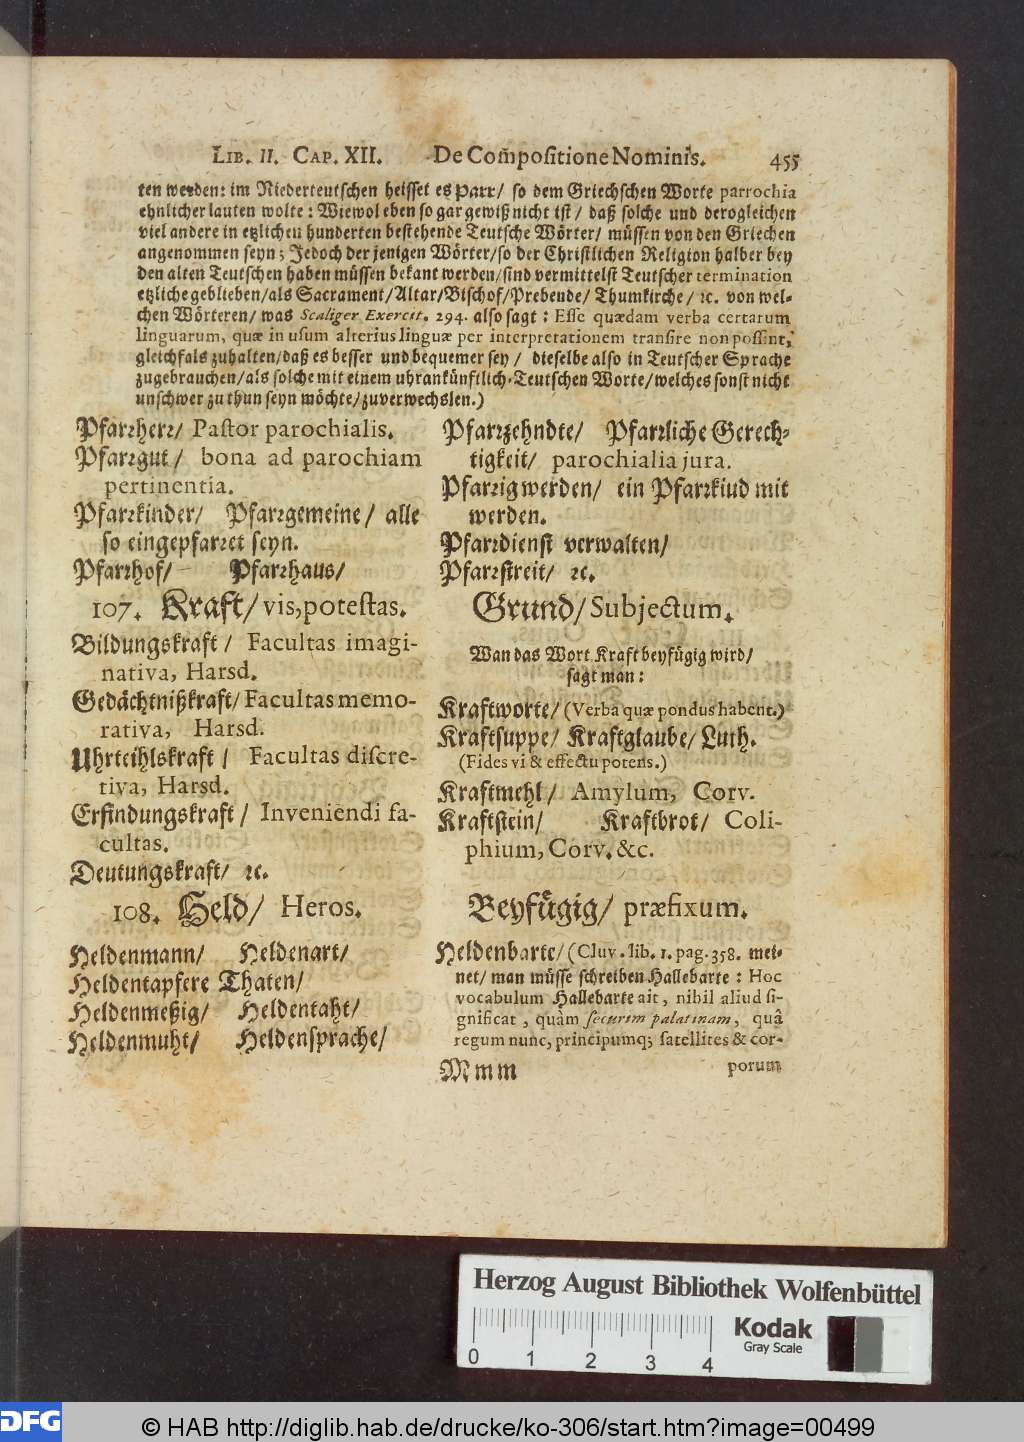 LIB. II. CAP. XII. De Compositione Nominis. 455
ten werden: im Niederteutschen heisset es Parr/ so dem Griechschen Worte parrochia
ehnlicher lauten wolte: Wiewol eben so gar gewiß nicht ist/ daß solche und derogleichen
viel andere in etzlichen hunderten bestehende Teutsche Wörter/ müssen von den Griechen
angenommen seyn; Jedoch der jenigen Wörter/ so der Christlichen Religion halber bey
den alten Teutschen haben müssen bekant werden/ sind vermittelst Teutscher termination
etzliche geblieben/ als Sacrament/ Altar/ Bischof/ Prebende/ Thumkirche/ ꝛc. von wel-
chen Wörteren/ was Scaliger Exercit. 294. also sagt: Esse quædam verba certarum
linguarum, quæ in usum alterius linguæ per interpretationem transire non possint,
gleichfals zuhalten/ daß es besser und bequemer sey/ dieselbe also in Teutscher Sprache
zugebrauchen/ als solche mit einem uhrankünftlich-Teutschen Worte/ welches sonst nicht
unschwer zu thun seyn möchte/ zuverwechslen.)
Pfarrherr/ Pastor parochialis.
Pfarrgut/ bona ad parochiam
pertinentia.
Pfarrkinder/ Pfarrgemeine/ alle
so eingepfarret seyn.
Pfarrhof/ Pfarrhaus/
Pfarrzehndte/ Pfarrliche Gerech-
tigkeit/ parochialia jura.
Pfarrig werden/ ein Pfarrkiud mit
werden.
Pfarrdienst verwalten/
Pfarrstreit/ ꝛc.
107. Kraft/ vis, potestas.
Bildungskraft/ Facultas imagi-
nativa, Harsd.
Gedächtnißkraft/ Facultas memo-
rativa, Harsd.
Uhrteihlskraft/ Facultas discre-
tiva, Harsd.
Erfindungskraft/ Inveniendi fa-
cultas.
Deutungskraft/ ꝛc.
Grund/ Subjectum.
Wan das Wort Kraft beyfügig wird/
sagt man:
Kraftworte/ (Verba quæ pondus habent.)
Kraftsuppe/ Kraftglaube/ Luth.
(Fides vi & effectu potens.)
Kraftmehl/ Amylum, Corv.
Kraftstein/ Kraftbrot/ Coli-
phium, Corv. &c.
108. Held/ Heros.
Heldenmann/ Heldenart/
Heldentapfere Thaten/
Heldenmeßig/ Heldentaht/
Heldenmuht/ Heldensprache/
Beyfügig/ præfixum.
Heldenbarte/ (Cluv. lib. 1. pag. 358. mei-
net/ man müsse schreiben Hallebarte: Hoc
vocabulum Hallebarte ait, nihil aliud si-
gnificat, quàm securim palatinam, quâ
regum nunc, principumq; satellites & cor-
Mmm porum
Herzog August Bibliothek Wolfenbüttel
0 1 2 3 4
Kodak
Gray Scale
DFG
© HAB http://diglib.hab.de/drucke/ko-306/start.htm?image=00499